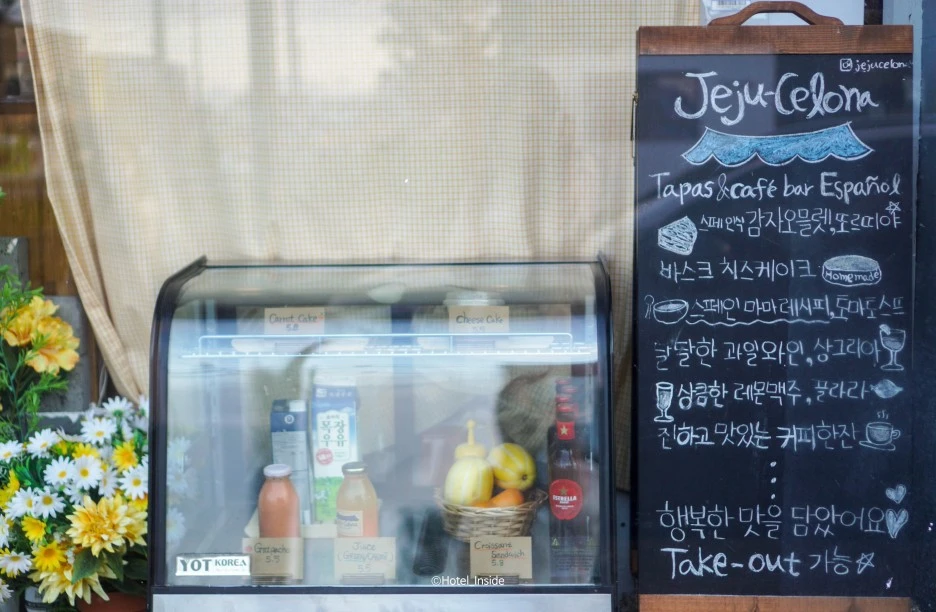 jejucelona
Jeju-Celona
Tapas & café bar Español
스페인식 감자오믈렛, 또르띠야
바스크 치즈케이크 Homemade
스페인 마마 레시피, 토마토스프
달달한 과일와인, 샹그리아
상큼한 레몬맥주, 끌라라
진하고 맛있는 커피한잔
행복한 맛을 담았어요
Take-out 가능
Carrot Cake
5.8
Cheese Cake
5.5
목장
우유
ESTRELLA
Gazpacho
5.5
Juice
5.5
Sandwich
5.8
YOT KOREA
©Hotel_Inside